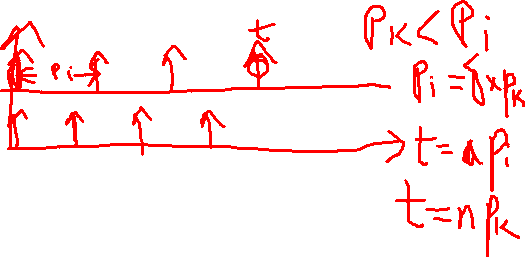 t
Pi
Pk < Pi
Pi = f x Pk
t = a Pi
t = n Pk